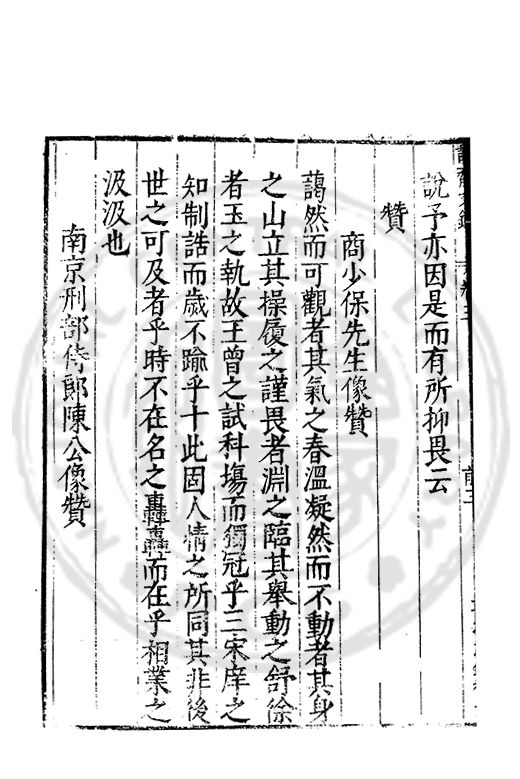 說予亦因是而有所抑畏云
贊
商少保先生像贊
藹然而可觀者其氣之春溫凝然而不動者其身
之山立其操履之謹畏者淵之臨其舉動之舒徐
者玉之執故王曾之試科塲而獨冠乎三宋庠之
知制誥而歲不踰乎十此固人情之所同其非後
世之可及者乎時不在名之轟轟而在乎相業之
汲汲也
南京刑部侍郎陳公像贊